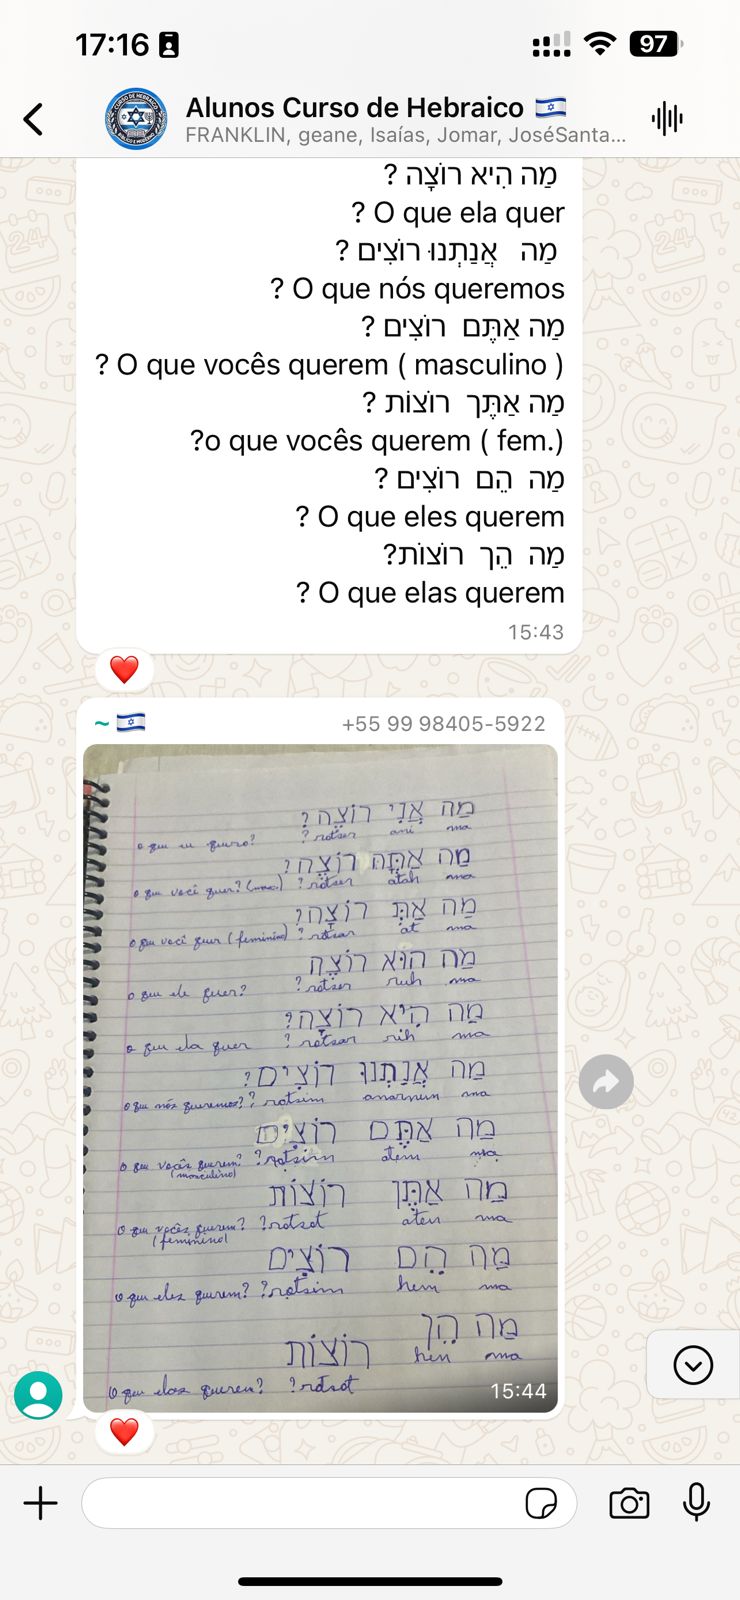 17:16
97
Alunos Curso de Hebraico 🇮🇱
FRANKLIN, geane, Isaías, Jomar, JoséSanta...
מַה הִיא רוֹצָה ?
? O que ela quer
מַה אֲנַתְנוּ רוֹצִים ?
? O que nós queremos
מַה אַתֶּם רוֹצִים ?
? O que vocês querem ( masculino )
מַה אַתֶּך רוֹצוֹת ?
?o que vocês querem ( fem.)
מַה הֵם רוֹצִים ?
? O que eles querem
מַה הֵך רוֹצוֹת?
? O que elas querem
15:43
~ 🇮🇱 +55 99 98405-5922
מַה אֲנִי רוֹצֶה?
o que eu quero? ? rotser ani ma
מַה אַתָּה רוֹצֶה?
o que você quer? (masc.) ? rotser atah ma
מַה אַתְּ רוֹצָה?
o que você quer (feminino) ? rotsar at ma
מַה הוּא רוֹצֶה
o que ele quer? ? rotser ruh ma
מַה הִיא רוֹצָה?
o que ela quer ? rotsar rih ma
מַה אֲנַתְנוּ רוֹצִים?
o que nós queremos? ? rotsim anarnun ma
מַה אַתֶּם רוֹצִים
o que vocês querem? ? rotsim atem ma
(masculino)
מַה אַתֶּן רוֹצוֹת
o que vocês querem? ? rotsot aten ma
(feminino)
מַה הֵם רוֹצִים
o que eles querem? ? rotsim hem ma
מַה הֵן רוֹצוֹת
hen ma
O que elas querem? ? rotsot
15:44